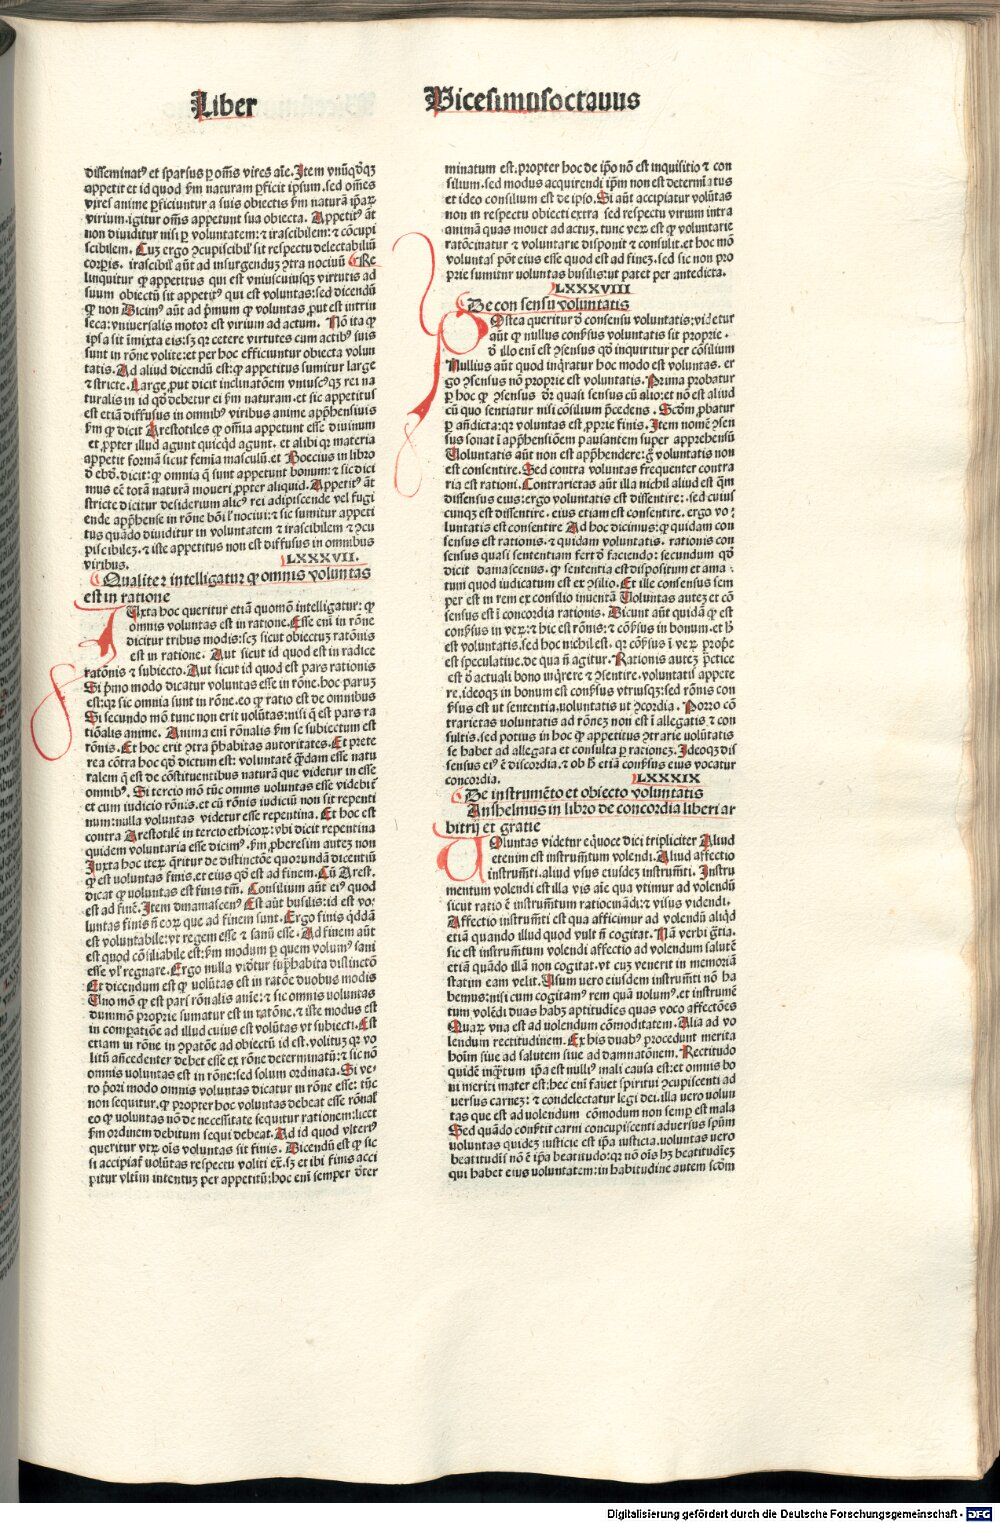 Liber
Vicesimusoctauus
disseminatꝰ et sparsus ꝑ om̄s vires aīe. Item vnūq̄dqꝫ
appetit et id quod ẜm naturam ꝑficit ipsum. sed om̄es
vires anime ꝑficiuntur a suis obiectis ẜm naturā ip̄aꝝ
virium. igitur om̄s appetunt sua obiecta. Appetitꝰ aūt
non diuiditur nisi ꝑ voluntatem: ⁊ irascibilem: ⁊ cōcupi
scibilem. Cuꝫ ergo ꝯcupiscibilꝭ sit respectu delectabiliū
corꝑis. irascibilꝭ aūt ad insurgenduꝫ ꝯtra nociuū Re
linquitur ꝙ appetitus qui est vniuscuiusqꝫ virtutis ad
suum obiectū sit appetitꝰ qui est voluntas: sed dicendū
ꝙ non Dicimꝰ aūt ad p̄mum ꝙ voluntas ꝓut est intrin
seca: vniuersalis motor est virium ad actum. Nō ita ꝙ
ip̄a sit īmixta eis: sꝫ qꝛ cetere virtutes cum actibꝰ suis
sunt in rōne volite: et per hoc efficiuntur obiecta volun
tatis. Ad aliud dicendū est: ꝙ appetitus sumitur large
⁊ stricte. Large ꝓut dicit inclinatōem vniuscꝰqꝫ rei na
turalis in id qd̄ debetur ei ẜm naturam. et sic appetitus
est etiā diffusus in omnibꝰ viribus anime app̄hensiuis
ẜm ꝙ dicit Arestotiles ꝙ om̄ia appetunt esse diuinum
et ꝓpter illud agunt quicq̄d agunt. et alibi qꝛ materia
appetit formā sicut femīa masculū. et Boecius in libro
d̄ ebd̄. dicit: ꝙ omnia q̄ sunt appetunt bonum: ⁊ sic dici
mus eē totā naturā moueri ꝓpter aliquid. Appetitꝰ aūt
stricte dicitur desiderium alicꝰ rei adipiscende vel fugi
ende app̄hense in rōne bōi ł nociui: ⁊ sic sumitur appeti
tus quādo diuiditur in voluntatem ⁊ irascibilem ⁊ ꝯcu
piscibileꝫ. ⁊ iste appetitus non est diffusus in omnibus
viribus.
LXXXVII.
Qualiter intelligatur ꝙ omnis voluntas
est in ratione
Iuxta hoc queritur etiā quomō intelligatur: ꝙ
omnis voluntas est in ratione. Esse eni in rōne
dicitur tribus modis: scꝫ sicut obiectuꝫ ratōnis
est in ratione. Aut sicut id quod est in radice
ratōnis ⁊ subiecto. Aut sicut id quod est pars rationis
Si p̄mo modo dicatur voluntas esse in rōne. hoc paruꝫ
est: qꝛ sic omnia sunt in rōne. eo ꝙ ratio est de omnibus
Si secundo mō tunc non erit volūtas: nisi q̄ est pars ra
tiōalis anime. Anima eni rōnalis ẜm se subiectum est
rōnis. Et hoc erit ꝯtra p̄habitas autoritates. Et prete
rea cōtra hoc qd̄ dictum est: voluntatē q̄dam esse natu
ralem q̄ est de cōstituentibus naturā que videtur in esse
omnibꝰ. Si tercio mō tūc omnis voluntas esse videbit̄
et cum iudicio rōnis. et cū rōnis iudiciū non sit repenti
num: nulla voluntas videtur esse repentina. Et hoc est
contra Arestotilē in tercio ethicoꝝ: vbi dicit repentina
quidem voluntaria esse dicimꝰ. ẜm ꝓheresim autez non
Iuxta hoc iteꝝ q̄ritur de distinctōe quorundā dicentiū
ꝙ est voluntas finis. et eius qd̄ est ad finem. Cū Arest.
dicat ꝙ voluntas est finis tm̄. Consilium aūt eiꝰ quod
est ad finē. Item dmamascenꝰ Est aūt busilis: id est vo
luntas finis n̄ eoꝝ que ad finem sunt. Ergo finis qd̄dā
est voluntabile: vt regem esse ⁊ sanū esse. Ad finem aūt
est quod cōsiliabile est: ẜm modum ꝑ quem volumꝰ sani
esse vł regnare. Ergo nulla vid̄tur sup̄habita distinctō
Et dicendum est ꝙ volūtas est in ratōe duobus modis
Uno mō ꝙ est pars rōnalis anie: ⁊ sic omnis voluntas
dummō proprie sumatur est in ratōne. ⁊ iste modus est
in comꝑatiōe ad illud cuius est volūtas vt subiecti. Est
etiam in rōne in ꝯꝑatōe ad obiectū id est. volituꝫ qꝛ vo
litū an̄cedenter debet esse ex rōne determinatū: ⁊ sic nō
omnis voluntas est in rōne: sed solum ordinata. Si ve
ro p̄ori modo omnis voluntas dicatur in rōne esse: tūc
non sequitur. ꝙ propter hoc voluntas debeat esse rōnał
eo ꝙ voluntas nō de necessitate sequitur rationem: licet
ẜm ordinem debitum sequi debeat. Ad id quod vlteriꝰ
queritur vtꝝ oīs voluntas sit finis. Dicendū est ꝙ sic
si accipiaṫ volūtas respectu voliti eꝝ. sꝫ et ibi finis acci
pitur vltim̄ intentuꝫ per appetitū: hoc eni semper d̄ter
minatum est. propter hoc de ip̄o nō est inquisitio ⁊ con
silium. sed modus acquirendi ip̄m non est determiatus
et ideo consilium est de ip̄so. Si aūt accipiatur volūtas
non in respectu obiecti extra sed respectu virium intra
animā quas mouet ad actuꝫ. tunc veꝝ est ꝙ voluntarie
ratōcinatur ⁊ voluntarie disponit ⁊ consulit. et hoc mō
voluntas pōt eius esse quod est ad fineꝫ. sed sic non pro
prie sumitur voluntas busilis: ut patet per antedicta.
LXXXVIII
De con sensu voluntatis
Postea queritur d̄ consensu voluntatis: videtur
aūt ꝙ nullus conẜus voluntatis sit proprie.
d̄ illo eni est ꝯsensus qd̄ inquiritur per cōsilium
Nullius aūt quod inq̄ratur hoc modo est voluntas. er
go ꝯsensus nō proprie est voluntatis. Prima probatur
ꝑ hoc ꝙ ꝯsensus d̄r quasi sensus cū alio: et nō est aliud
cū quo sentiatur nisi cōsilium p̄cedens. Scd̄m ꝓbatur
ꝑ an̄dicta: qꝛ voluntas est ꝓprie finis. Item nomē ꝯsen
sus sonat i app̄hensiōem pausantem super apprehensū
Uoluntatis aūt non est app̄hendere: ḡ voluntatis non
est consentire. Sed contra voluntas frequenter contra
ria est rationi. Contrarietas aūt illa nichil aliud est q̄m
dissensus eius: ergo volūtatis est dissentire: sed cuius
cunqꝫ est dissentire. eius etiam est consentire. ergo vo
luntatis est consentire Ad hoc dicimus: ꝙ quidam con
sensus est rationis. ⁊ quidam voluntatis. rationis con
sensus quasi sententiam fert d̄ faciendo: secundum qd̄
dicit damascenus. ꝙ sententia est dispositum et ama
tum quod iudicatum est ex ꝯsilio. Et ille consensus sem
per est in rem ex consilio inuentā Uoluntas autez et cō
sensus est i concordia rationis. Dicunt aūt quidā ꝙ est
conẜus in veꝝ: ⁊ hic est rōnis: ⁊ cōẜus in bonum. et ħ
est voluntatis. sed hoc nichil est. qꝛ cōẜus i veꝝ prop̄e
est speculatiue. de qua n̄ agitur. Rationis autez p̄ctice
est d̄ actuali bono inq̄rere ⁊ ꝯsentire. voluntatis appete
re. ideoqꝫ in bonum est conẜus vtriusqꝫ: sed rōnis con
ẜus est ut sententia. voluntatis ut ꝯcordia. Porro cō
trarietas voluntatis ad rōnez non est i allegatis ⁊ con
sultis. sed potius in hoc ꝙ appetitus ꝯtrarie uolūtatis
se habet ad allegata et consulta ꝑ rationeꝫ. Ideoqꝫ dis
sensus eiꝰ ē discordia. ⁊ ob ħ etiā conẜus eius vocatur
concordia.
LXXXIX
De instrumēto et obiecto voluntatis
Anshelmus in libro de concordia liberi ar
bitrij et gratie
Uoluntas videtur eq̄uoce dici tripliciter Aliud
etenim est instrum̄tum volendi. Aliud affectio
instrum̄ti. aliud vsus eiusdeꝫ instrum̄ti. Instru
mentum volendi est illa vis aīe qua vtimur ad volendū
sicut ratio ē instrum̄tum ratiocinādi: ⁊ visus videndi.
Affectio instrum̄ti est qua afficimur ad volendū aliqd
etiā quando illud quod vult n̄ cogitat. Nā verbi ḡtia.
sic est instrum̄tum volendi affectio ad volendum salutē
etiā quādo illā non cogitat. vt cuꝫ venerit in memoriā
statim eam velit. Usum uero eiusdem instrum̄ti nō ha
bemus: nisi cum cogitamꝰ rem quā uolumꝰ. et instrumē
tum volēdi duas habꝫ aptitudies quas voco affectōes
Quaꝝ vna est ad uolendum cōmoditatem. Alia ad vo
lendum rectitudinem. Ex his duabꝰ procedunt merita
hoim siue ad salutem siue ad damnatōnem. Rectitudo
quidē inq̄ntum ip̄a est nulliꝰ mali causa est: et omnis bo
ni meriti mater est: hec eni fauet spiritui ꝯcupiscenti ad
uersus carneꝫ: ⁊ condelectatur legi dei. illa uero volun
tas que est ad uolendum cōmodum non semꝑ est mala
Sed quādo conẜtit carni concupiscenti aduersus spūm
voluntas quideꝫ iusticie est ip̄a iusticia. uoluntas uero
beatitudīs nō ē ip̄a beatitudo: qꝛ nō oīs hꝫ beatitudieꝫ
qui habet eius uoluntatem: in habitudine autem scd̄m
Digitalisierung gefördert durch die Deutsche Forschungsgemeinschaft - DFG